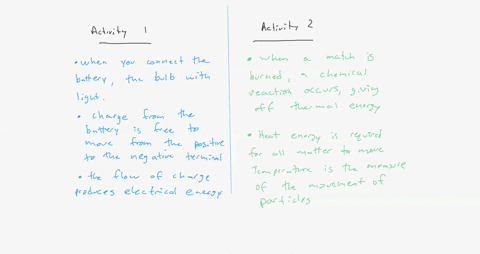 Activity 1
• When you connect the
battery, the bulb with
light.
• charge from the
battery is free to
move from the positive
to the negative terminal
• the flow of charge
produces electrical energy
Activity 2
• When a match is
burned, a chemical
reaction occurs, giving
off thermal energy
• Heat energy is required
for all matter to move
Temperature is the measure
of the movement of
particles